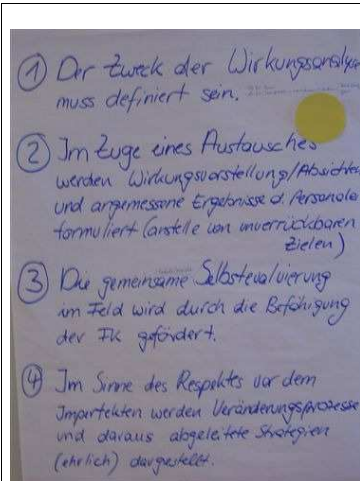 ① Der Zweck der Wirkungsanalyse
muss definiert sein.
② Im Zuge eines Austausches
werden Wirkungsvorstellung/Absichten
und angemessene Ergebnisse d.
formuliert (anstelle von unverrückbaren
Zielen)
③ Die gemeinsame Selbstevaluierung
im Feld wird durch die Befähigung
der FK gefördert.
④ Im Sinne des Respektes vor dem
Imperfekten werden Veränderungsprozesse
und daraus abgeleitete Strategien
(ehrlich) dargestellt.